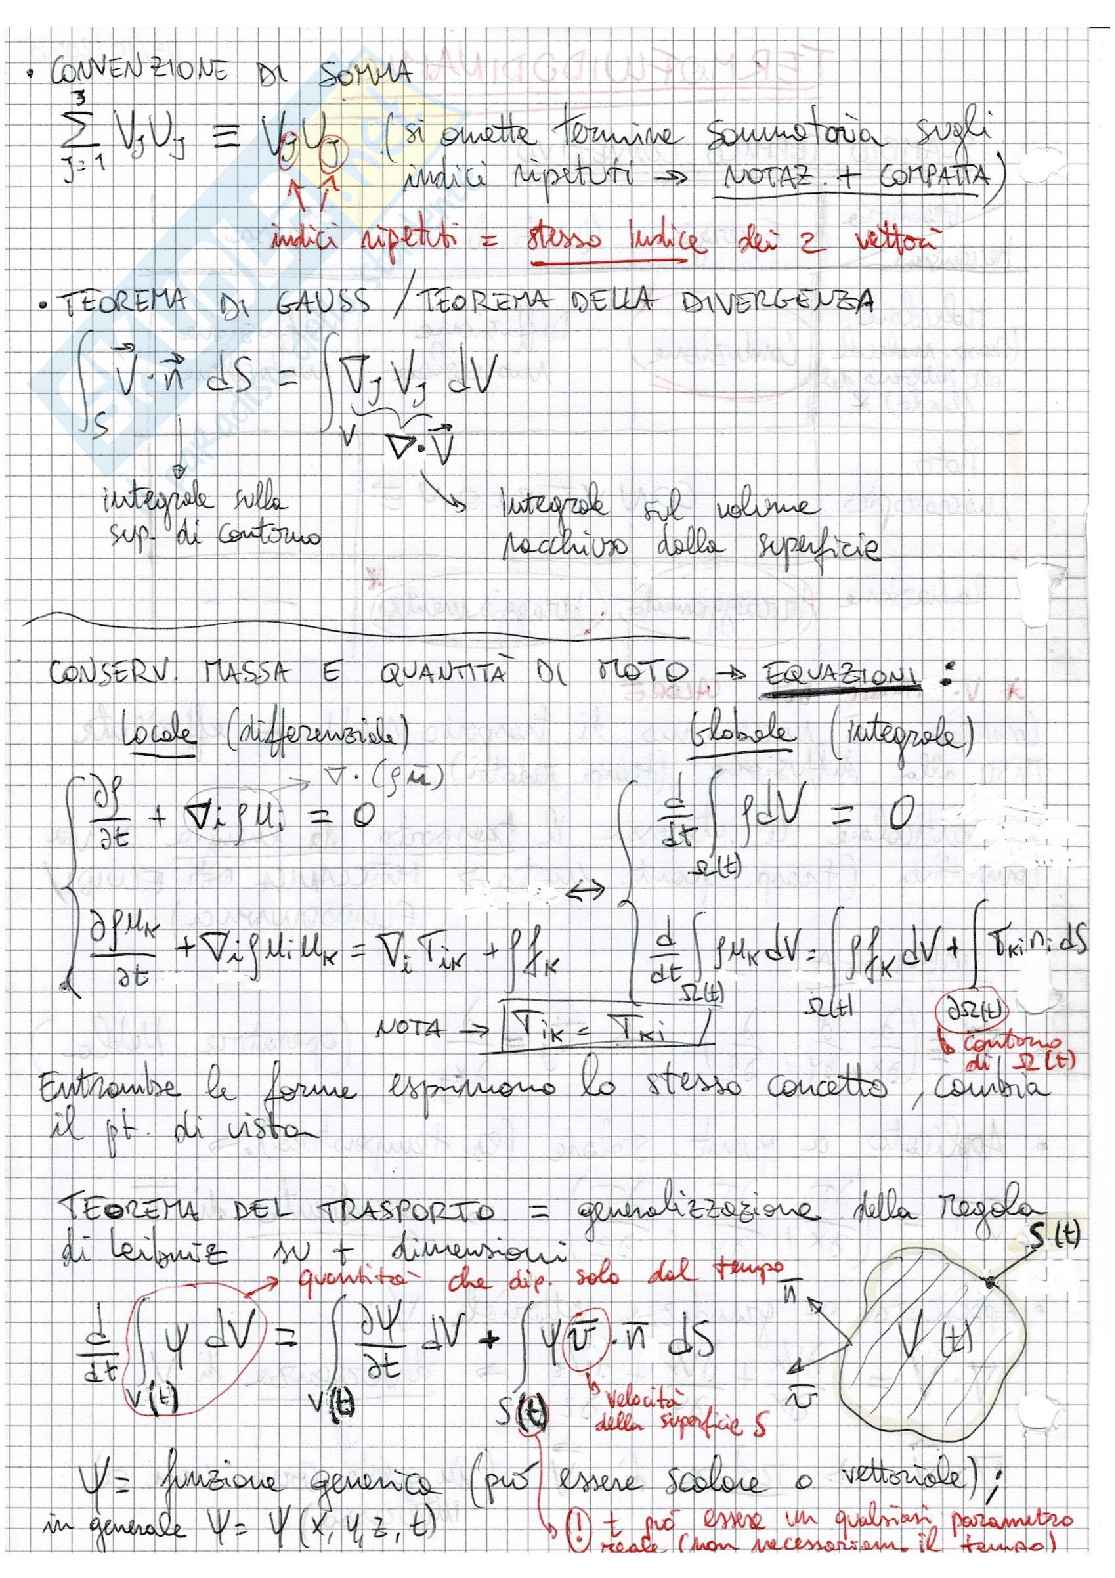 • CONVENZIONE DI SOMMA
∑_{J=1}^{3} V_J U_J ≡ V_J U_J (si omette termine sommatoria sugli
indici ripetuti → NOTAZ. + COMPATTA)
indici ripetuti = stesso indice dei 2 vettori
• TEOREMA DI GAUSS / TEOREMA DELLA DIVERGENZA
∫_S V⃗·n⃗ dS = ∫_V ∇_J V_J dV
∇·V⃗
integrale sulla
sup. di contorno
integrale sul volume
racchiuso dalla superficie
CONSERV. MASSA E QUANTITÀ DI MOTO → EQUAZIONI:
Locale (differenziale)
Globale (integrale)
∇·(ρu̅)
∂ρ/∂t + ∇_i ρu_i = 0
d/dt ∫_{Ω(t)} ρdV = 0
↔
∂ρu_K/∂t + ∇_i ρu_i u_K = ∇_i T_{iK} + ρf_K
d/dt ∫_{Ω(t)} ρu_K dV = ∫_{Ω(t)} ρf_K dV + ∫_{∂Ω(t)} T_{Ki} n_i dS
NOTA → T_{iK} = T_{Ki}
contorno
di Ω(t)
Entrambe le forme esprimono lo stesso concetto, cambia
il pt. di vista
TEOREMA DEL TRASPORTO = generalizzazione della regola
di Leibniz su + dimensioni
S(t)
quantità che dip. solo dal tempo
n̅
d/dt ∫_{V(t)} ψ dV = ∫_{V(t)} ∂ψ/∂t dV + ∫_{S(t)} ψ v̅·n̅ dS
V(t)
v̅
velocità
della superficie S
ψ = funzione generica (può essere scalare o vettoriale);
in generale ψ = ψ(x, y, z, t)
(!) t può essere un qualsiasi parametro
reale (non necessariam. il tempo)